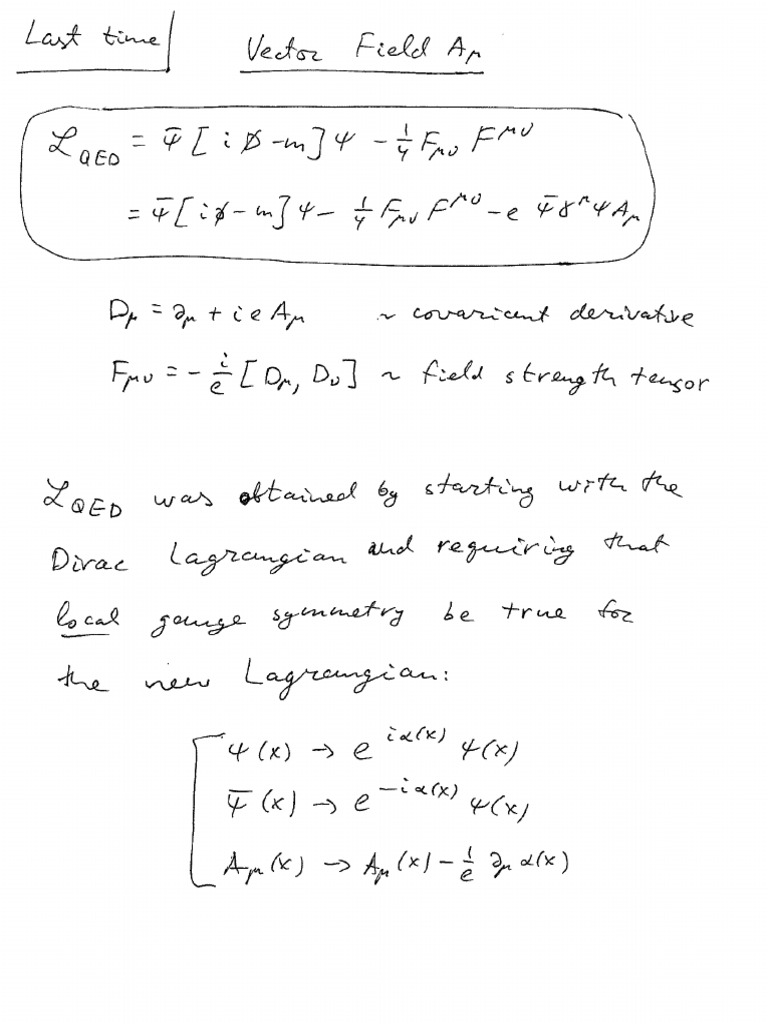 Last time
Vector Field Aμ
ℒ_QED = ψ̄ [i D̸ - m] ψ - 1/4 Fμν F^μν
= ψ̄ [i ∂̸ - m] ψ - 1/4 Fμν F^μν - e ψ̄ γ^μ ψ Aμ
Dμ = ∂μ + i e Aμ ~ covariant derivative
Fμν = - i/e [Dμ, Dν] ~ field strength tensor
ℒ_QED was obtained by starting with the
Dirac Lagrangian and requiring that
local gauge symmetry be true for
the new Lagrangian:
ψ(x) → e^{iα(x)} ψ(x)
ψ̄(x) → e^{-iα(x)} ψ(x)
Aμ(x) → Aμ(x) - 1/e ∂μ α(x)